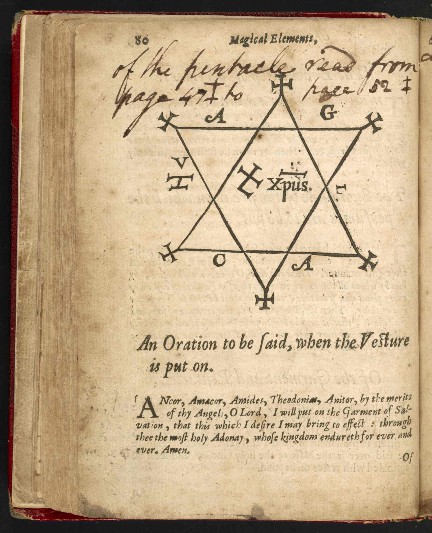 80 Magical Elements,
of the pentacle read from
page 47 ‡ to page 52 ‡
A G
V
H Xpus. L
O A
An Oration to be ſaid, when the Veſture
is put on.
ANcor, Amacor, Amides, Theodonias, Anitor, by the merits
of thy Angel, O Lord, I will put on the Garment of Sal-
vation, that this which I deſire I may bring to effect : through
thee the moſt holy Adonay, whoſe kingdom endureth for ever and
ever. Amen.
Of